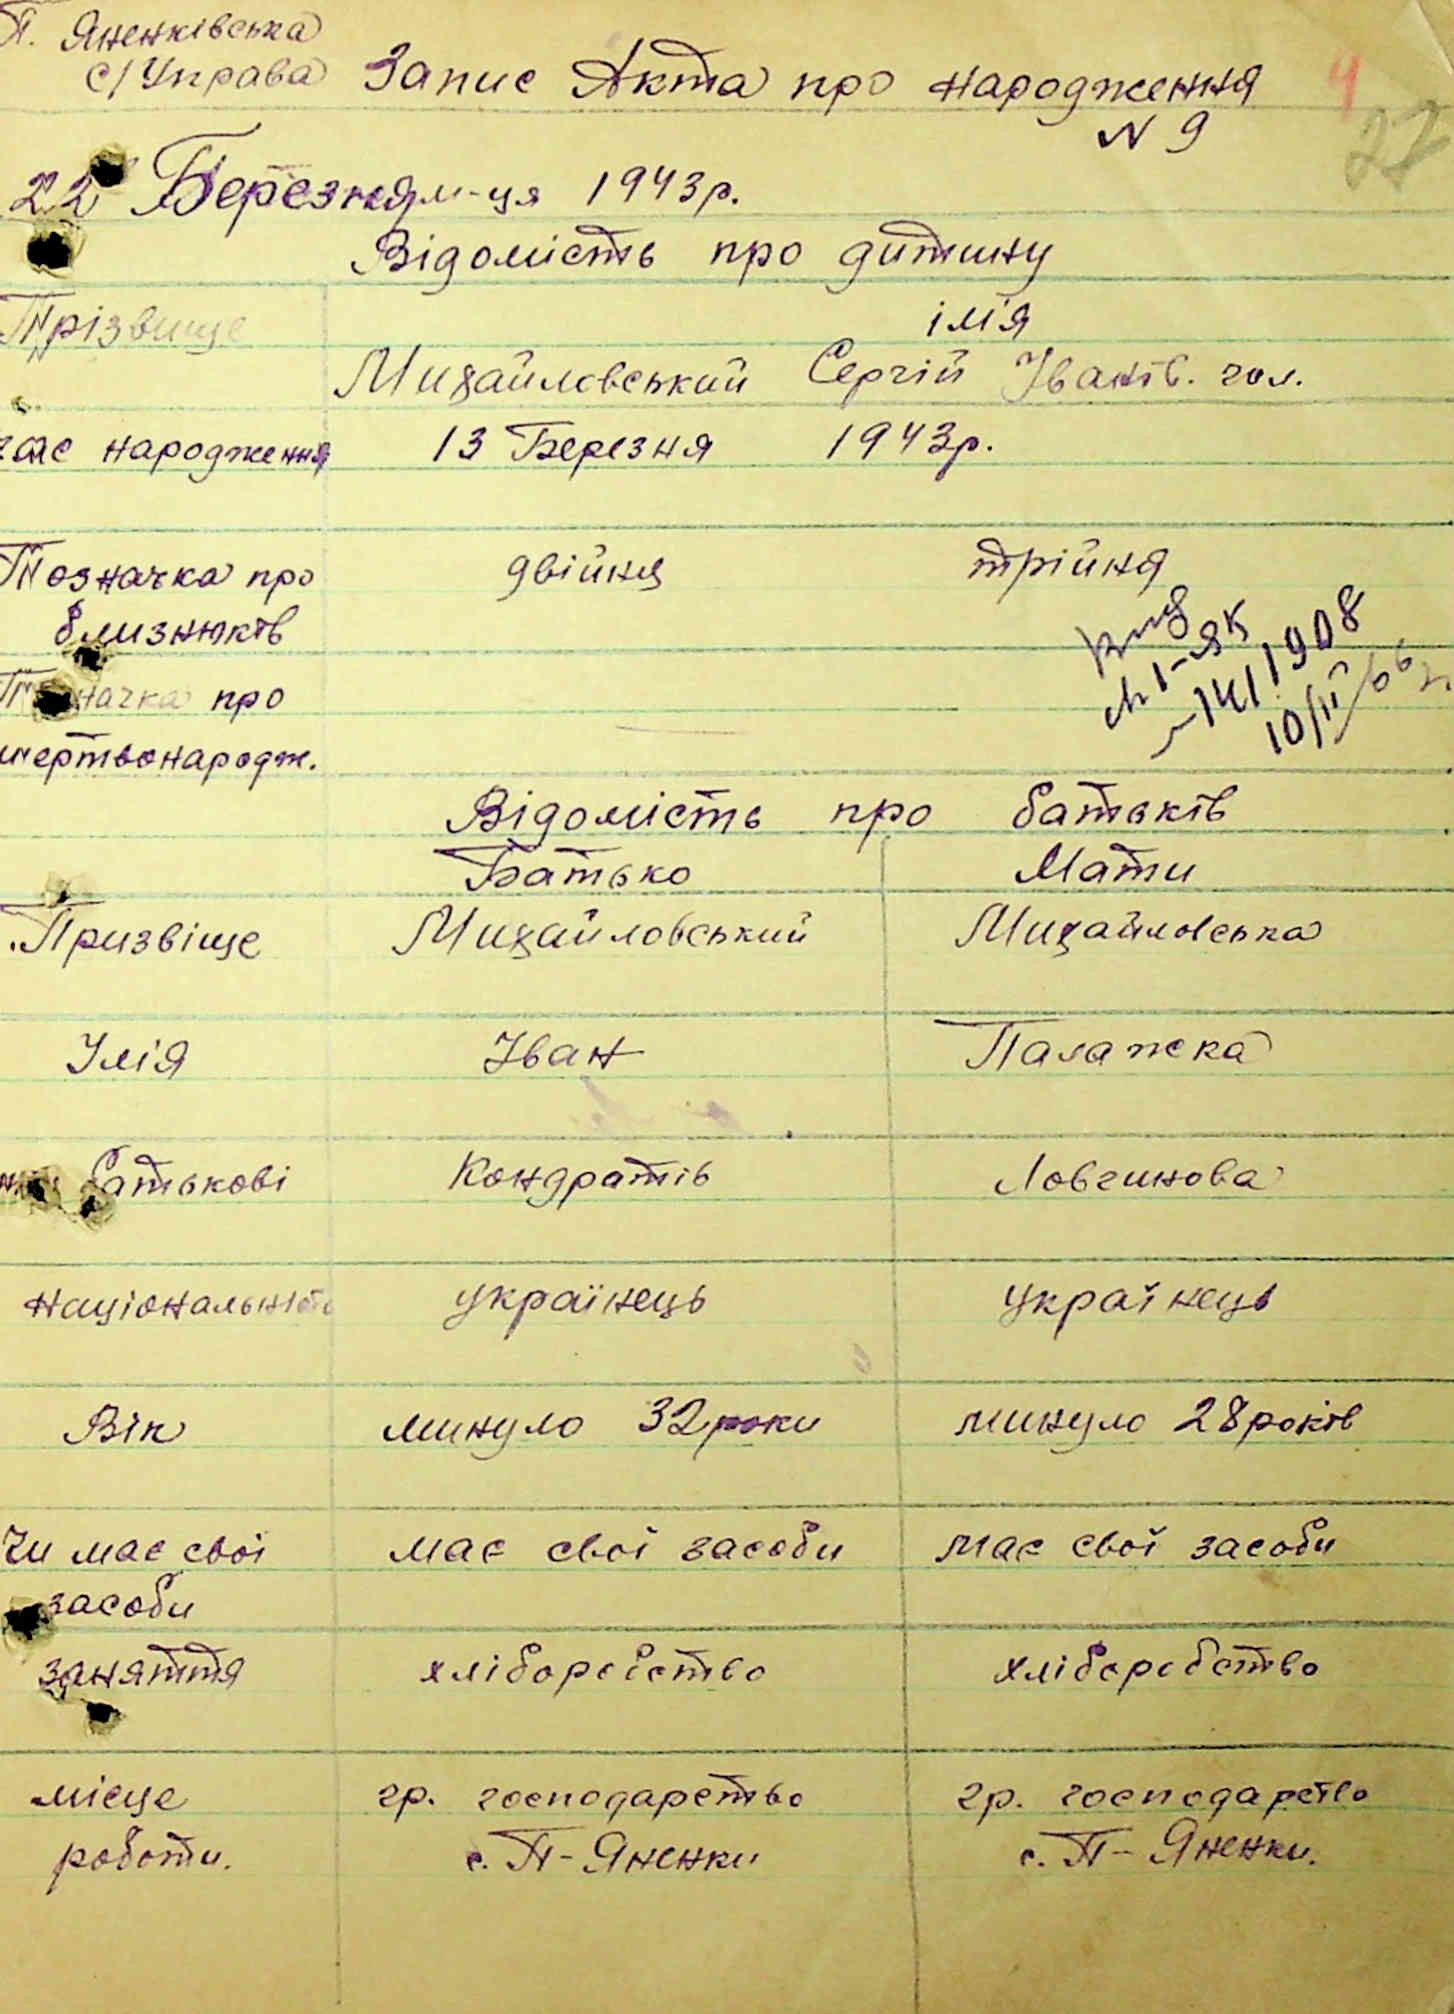 П. Яненківська
с/Управа
Запис Акта про народження
N 9
4
27
22 Березня м-ця 1943р.
Відомість про дитину
Прізвище ім'я
Михайловський Сергій Іванів. чол.
час народження 13 Березня 1943р.
Позначка про двійня трійня
близнюків
1-ЯК
1908
10/II/06
про
мертвонародж.
Відомість про батьків
Батько Мати
Призвіще Михайловський Михайловська
Імія Іван Палажка
батькові Кондратів Ловгинова
національність українець українець
Вік минуло 32роки минуло 28років
Чи має свої має свої засоби має свої засоби
засоби
заняття хліборобство хліборобство
місце гр. господарство гр. господарство
роботи. с. П-Яненки с. П-Яненки.